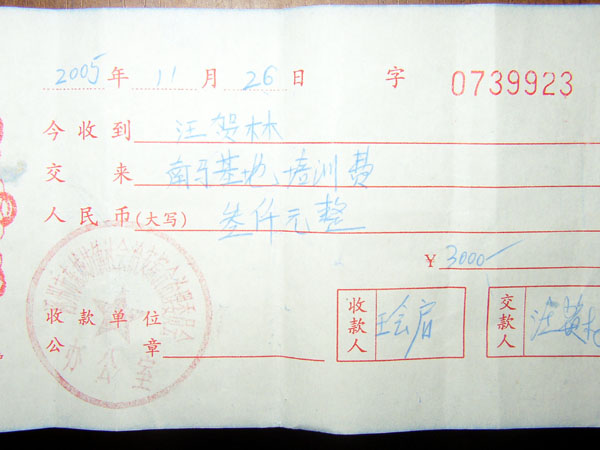 2005年11月26日 字 0739923
今收到 汪贺林
交来 南马基地培训费
人民币(大写) 叁仟元整
¥3000
收款单位
公章
办公室
收款人
交款人 汪